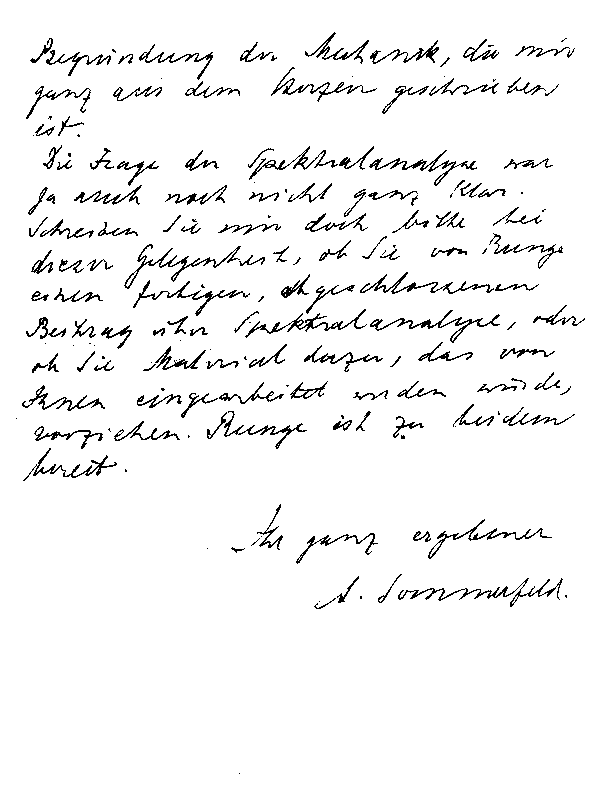 Begründung der Mechanik, die mir
ganz aus dem Herzen geschrieben
ist.
Die Frage der Spektralanalyse war
ja auch noch nicht ganz klar.
Schreiben Sie mir doch bitte bei
dieser Gelegenheit, ob Sie von Runge
einen fertigen, abgeschlossenen
Beitrag über Spektralanalyse, oder
ob Sie Material dazu, das von
Ihnen eingearbeitet werden würde,
vorziehen. Runge ist zu beidem
bereit.
Ihr ganz ergebener
A. Sommerfeld.